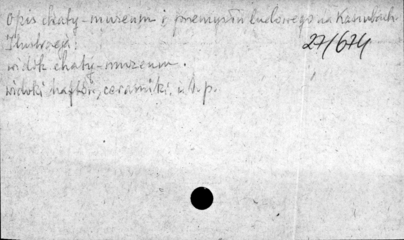 Opis chaty-muzeum i przemysłu ludowego na Kaszubach.
Ilustracja:
widok chaty-muzeum.
27/674
widoki haftów, ceramiki, i t. p.